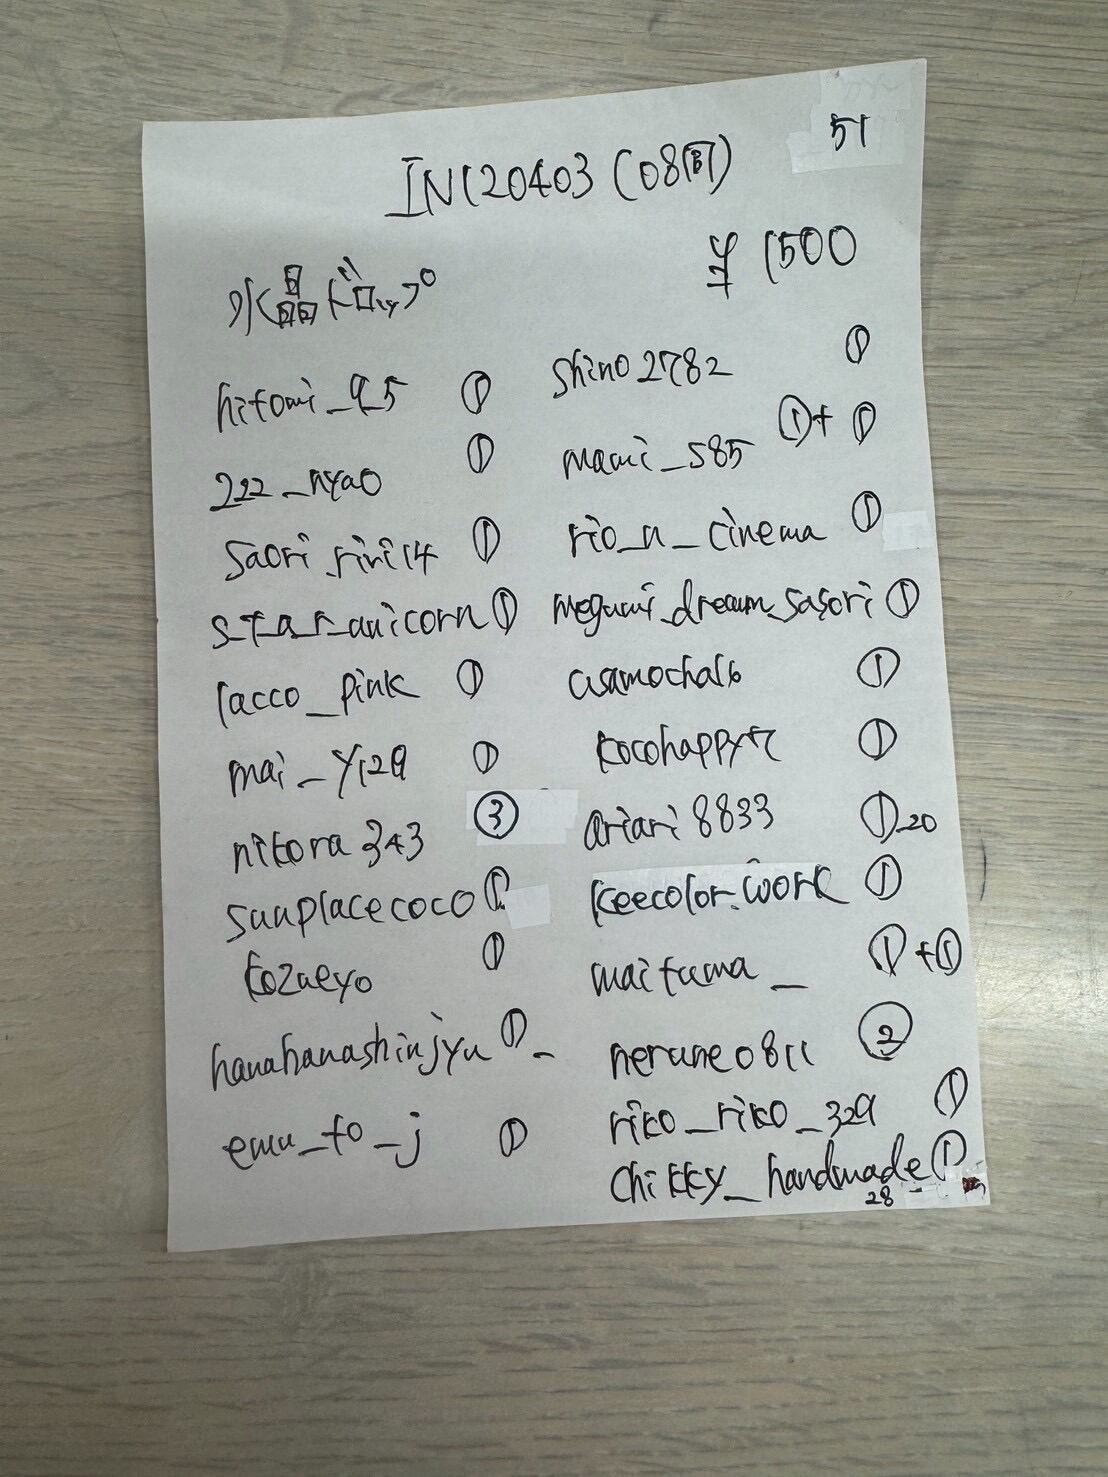 51
IN120403 (08回)
¥ 1500
水晶ドロップ
hitomi_95 ①
222_nyao ①
saori_riri14 ①
s_t_a_r_unicorn ①
lacco_pink ①
mai_y129 ①
nikora343 ③
sunplacecoco ①
kozueyo ①
hanahanashinjyu ①_
emu_to_j ①
shino2782 ①
mami_585 ①+①
rio_n_cinema ①
megumi_dream_sasori ①
asamocha16 ①
kocohappy7 ①
ariari8833 ①-20
keecolor.work ①
maifuma_ ①+①
nerune0811 ②
riko_riko_329 ①
chikky_handmade ①
28